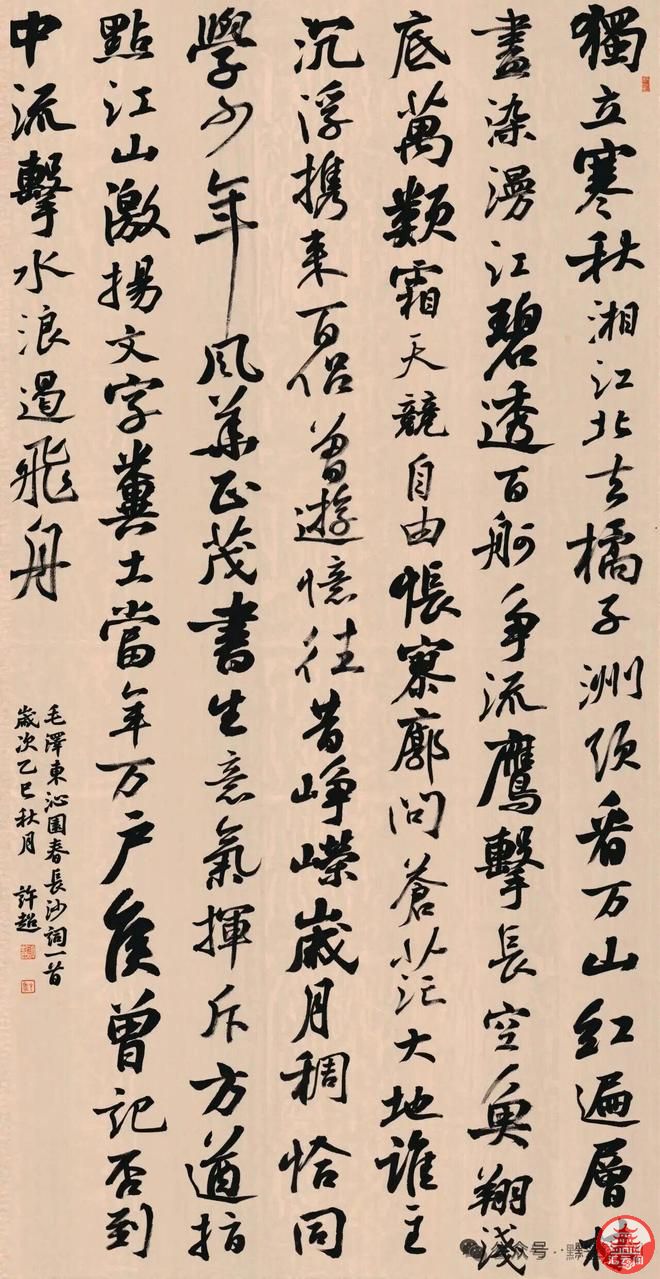 獨立寒秋湘江北去橘子洲頭看万山紅遍層林
盡染漫江碧透百舸争流鷹擊長空魚翔淺
底萬類霜天競自由悵寥廓問蒼茫大地誰主
沉浮携来百侣曾遊憶往昔崢嶸歲月稠恰同
學少年風華正茂書生意氣揮斥方遒指
點江山激揚文字糞土當年万户侯曾記否到
中流擊水浪遏飛舟
毛澤東沁園春長沙詞一首
歲次乙巳秋月 許超
公众号